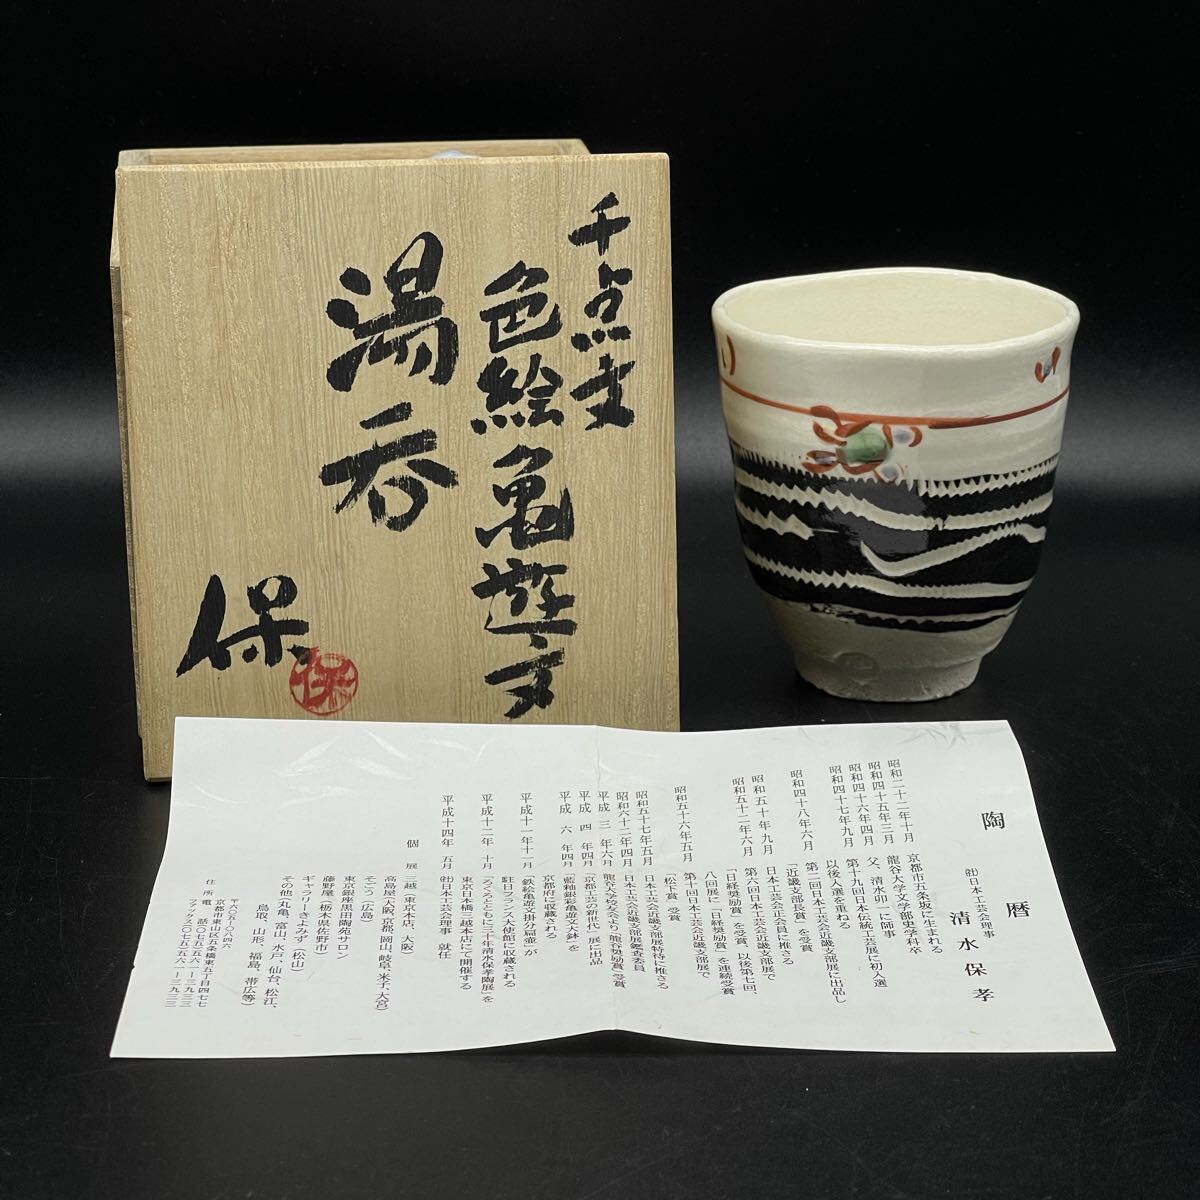 千点文
色絵亀遊文
湯呑
保
保
陶暦
(社)日本工芸会理事
清水保孝
昭和二十二年十月 京都市五条坂に生まれる
昭和四十五年三月 龍谷大学文学部史学科卒
昭和四十六年四月 父、清水卯一に師事
昭和四十七年九月 第十九回日本伝統工芸展に初入選
以後入選を重ねる
昭和四十八年六月 第二回日本工芸会近畿支部展に出品し
「近畿支部長賞」を受賞
昭和五十年九月 日本工芸会正会員に推さる
昭和五十二年六月 第六回日本工芸会近畿支部展で
「日経奨励賞」を受賞、以後第七回、
八回展に「日経奨励賞」を連続受賞
昭和五十六年五月 第十回日本工芸会近畿支部展で
「松下賞」受賞
昭和五十七年五月 日本工芸会近畿支部展特待に推さる
昭和六十二年四月 日本工芸会近畿支部展鑑査委員
平成三年六月 龍谷大学校友会より「龍谷奨励賞」受賞
平成四年四月 「京都工芸の新世代」展に出品
平成六年四月 「藍釉銀彩亀遊文大鉢」を
京都府に収蔵される
平成十一年十一月 「鉄絵亀遊文掛分扁壷」が
駐日フランス大使館に収蔵される
平成十二年十月 「ろくろとともに三十年清水保孝陶展」を
東京日本橋三越本店にて開催する
平成十四年五月 (社)日本工芸会理事 就任
個展 三越(東京本店、大阪)
高島屋(大阪、京都、岡山、岐阜、米子、大宮)
そごう(広島)
東京銀座黒田陶苑サロン
藤野屋(栃木県佐野市)
ギャラリーきよみず(松山)
その他(丸亀、富山、水戸、仙台、松江、
鳥取、山形、福島、帯広等)
〒六〇五-〇八四六
住所 京都市東山区五条橋東五丁目四七七
電話 〇七五-五六一-三九三三
ファックス 〇七五-五六一-三九三三